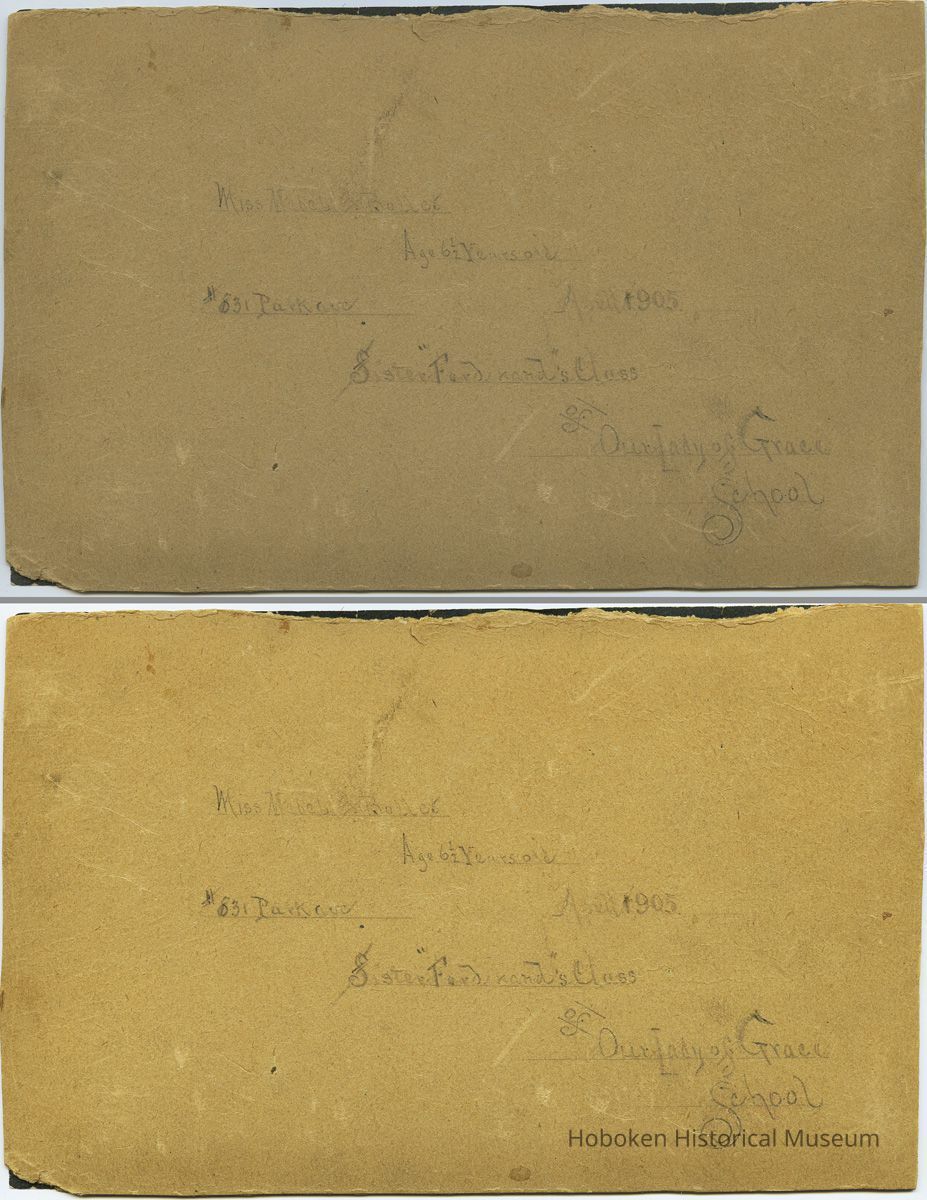 Miss
Age 6½ Years old
#531 Park ave April 1905.
Sister "Ferdinand"'s Class
of
Our Lady of Grace
School
Miss
Age 6½ Years old
#531 Park ave April 1905.
Sister "Ferdinand"'s Class
of
Our Lady of Grace
School
Hoboken Historical Museum